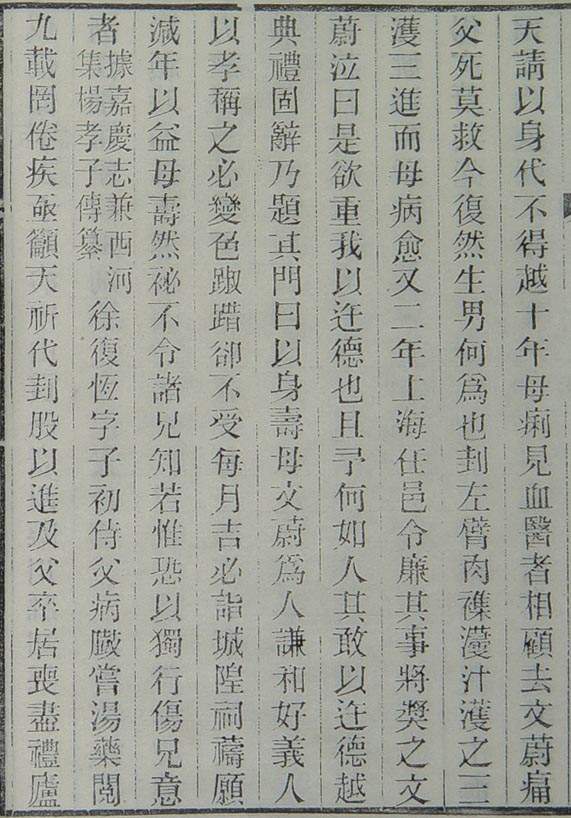 天請以身代不得越十年母痢見血醫者相顧去文蔚痛
父死莫救今復然生男何爲也刲左臂肉襍濩汁濩之三
濩三進而母病愈又二年上海任邑令廉其事將奬之文
蔚泣曰是欲重我以迕德也且予何如人其敢以迕德越
典禮固辭乃題其門曰以身壽母文蔚爲人謙和好義人
以孝稱之必變色踧踖卻不受每月吉必詣城隍祠禱願
減年以益母壽然祕不令諸兄知若惟恐以獨行傷兄意
者據嘉慶志兼西河集楊孝子傳纂 徐復恆字子初侍父病職嘗湯藥閱
九載罔倦疾亟籲天祈代刲股以進及父卒居喪盡禮廬